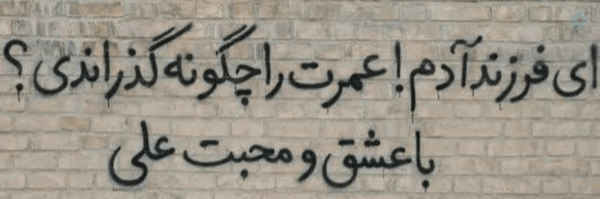 ای فرزند آدم! عمرت را چگونه گذراندی؟
با عشق و محبت علی